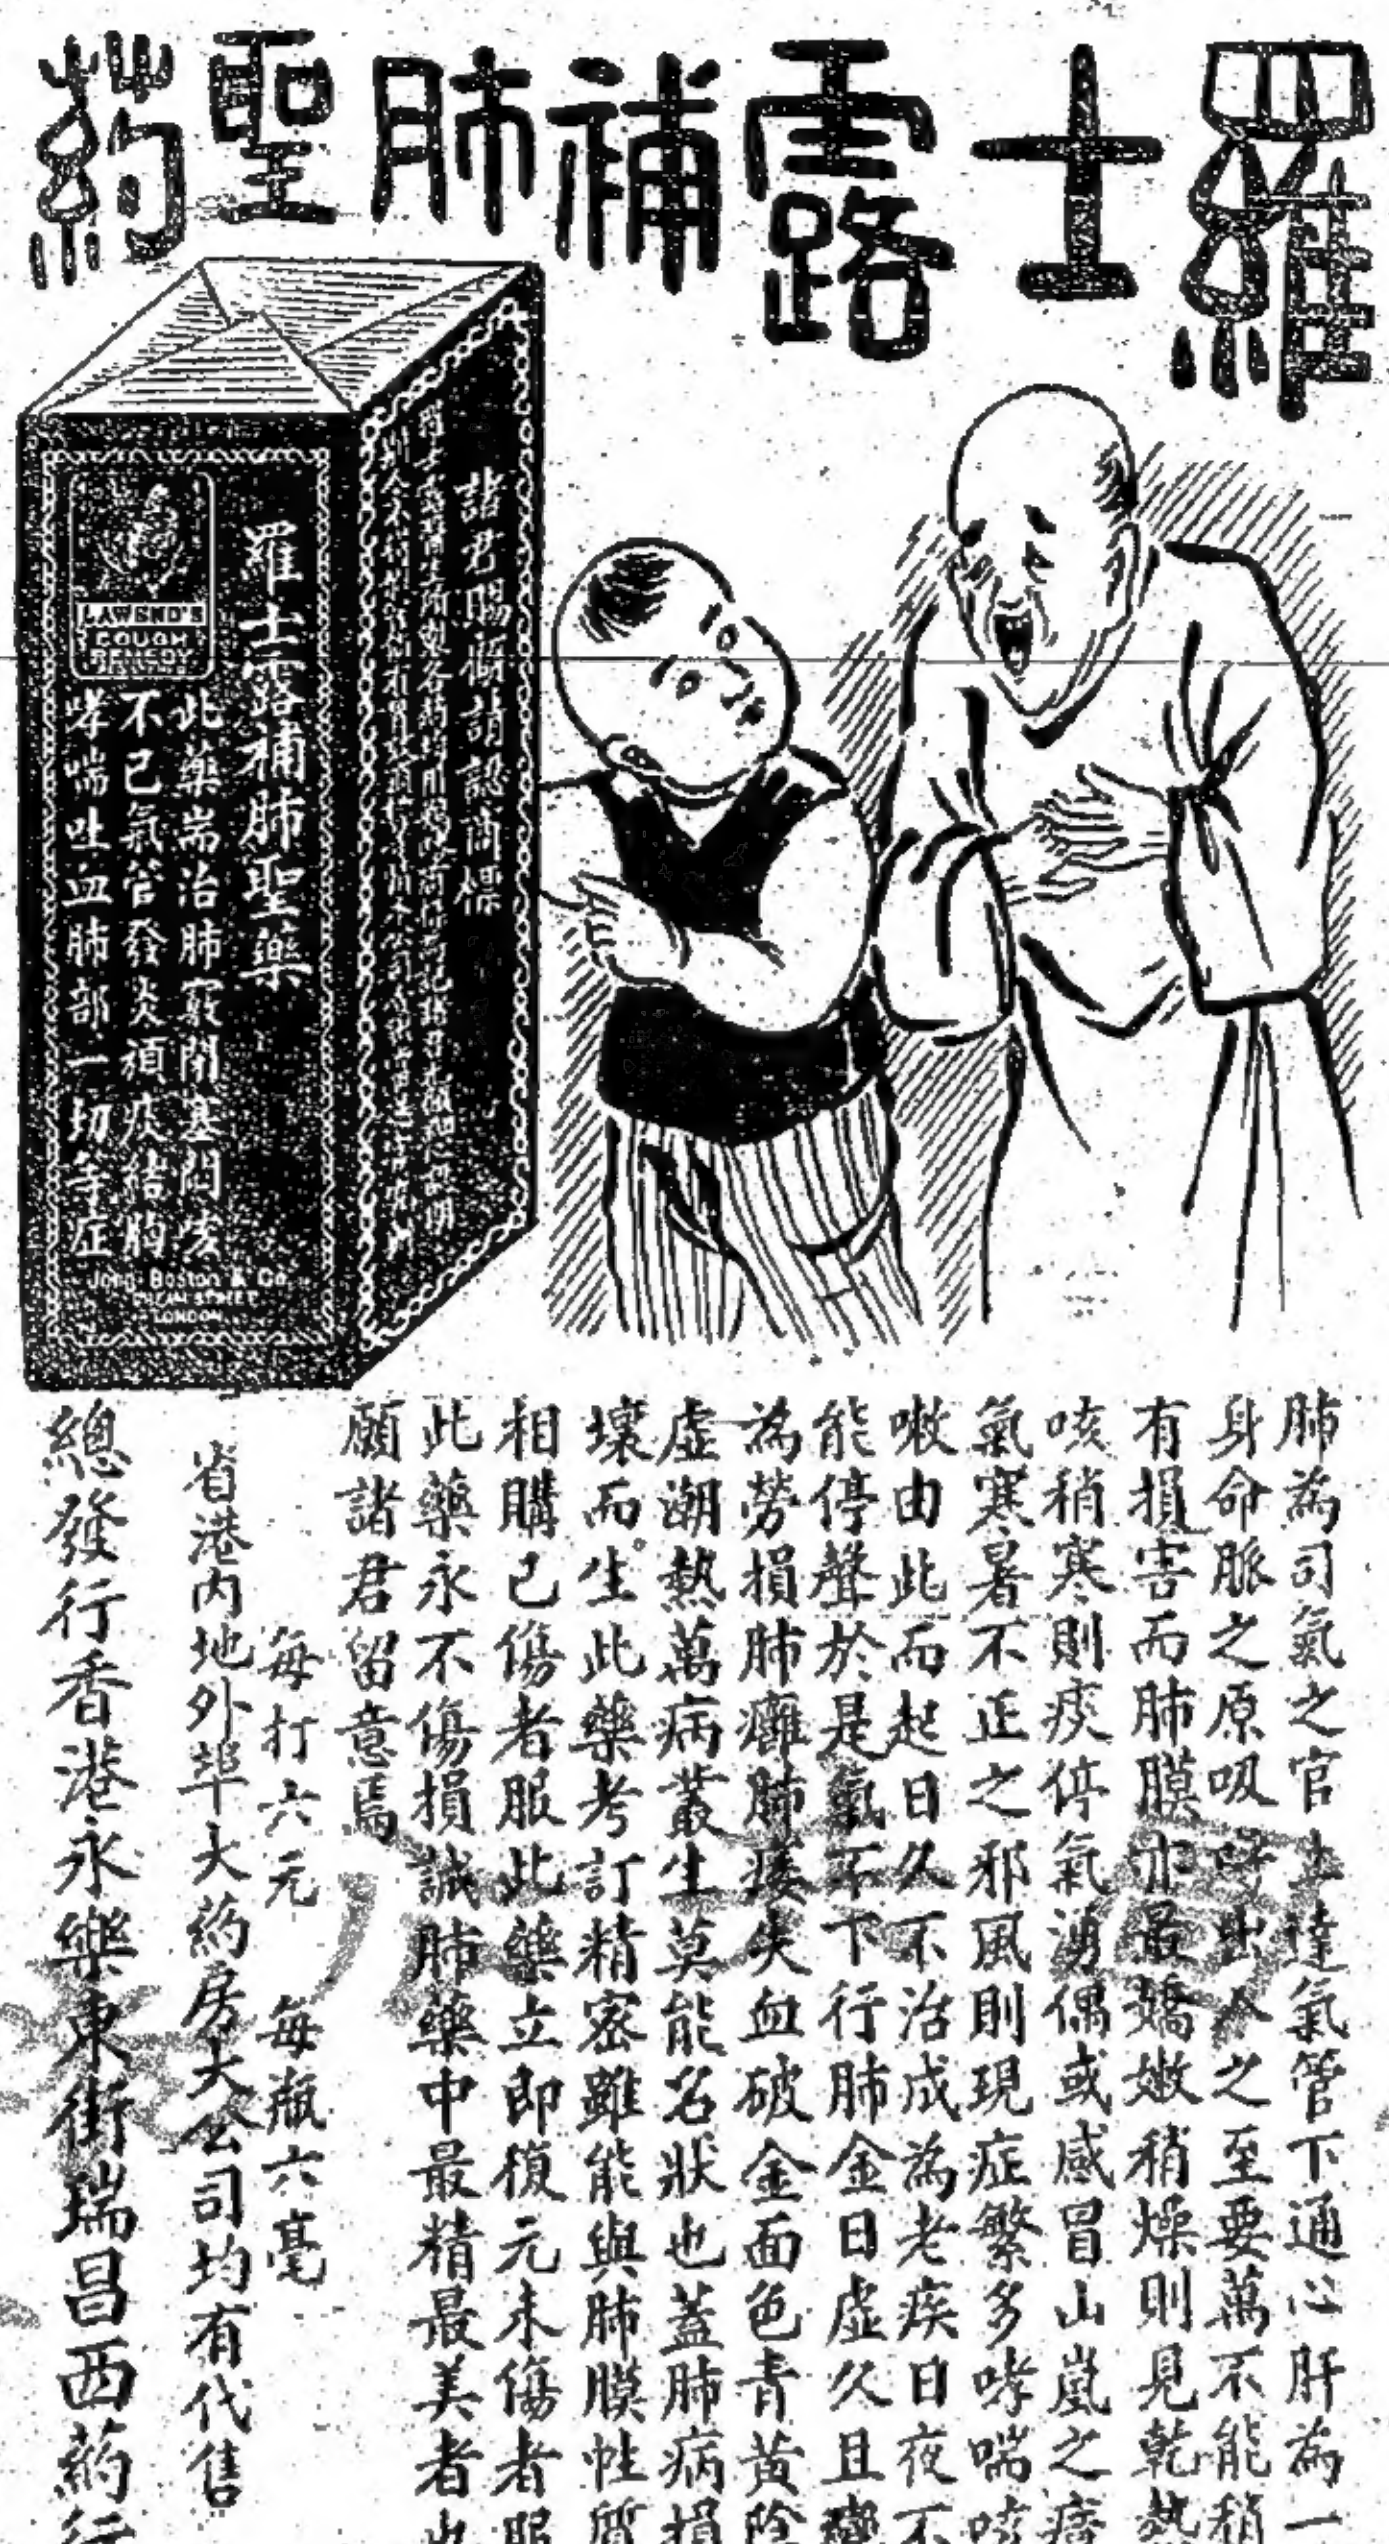 羅士露補肺聖葯
諸君賜顧請認商標
羅士露補肺聖藥
LAWEND'S
COUGH
REMEDY
此藥耑治肺竅閉塞悶咳
不已氣管發炎頑痰結胸
哮喘吐血肺部一切等症
John Boston & Co
LONDON
肺為司氣之官上達氣管下通心肝為一
身命脈之原吸呼出入之至要萬不能稍
有損害而肺膜亦最嬌嫩稍燥則見乾熱
咳稍寒則痰停氣湧偶或感冒山嵐之瘴
氣寒暑不正之邪風則現症繁多哮喘咳
嗽由此而起日久不治成為老疾日夜不
能停聲於是氣不下行肺金日虛久且變
為勞損肺癰肺痿失血破金面色青黃陰
虛潮熱萬病叢生莫能名狀也蓋肺病損
壞而生此藥考訂精密雖能與肺膜性質
相購已傷者服此藥立即復元未傷者服
此藥永不傷損誠肺藥中最精最美者也
願諸君留意焉
每打六元 每瓶六毫
省港內地外埠大葯房大公司均有代售
總發行香港永樂東街瑞昌西葯行